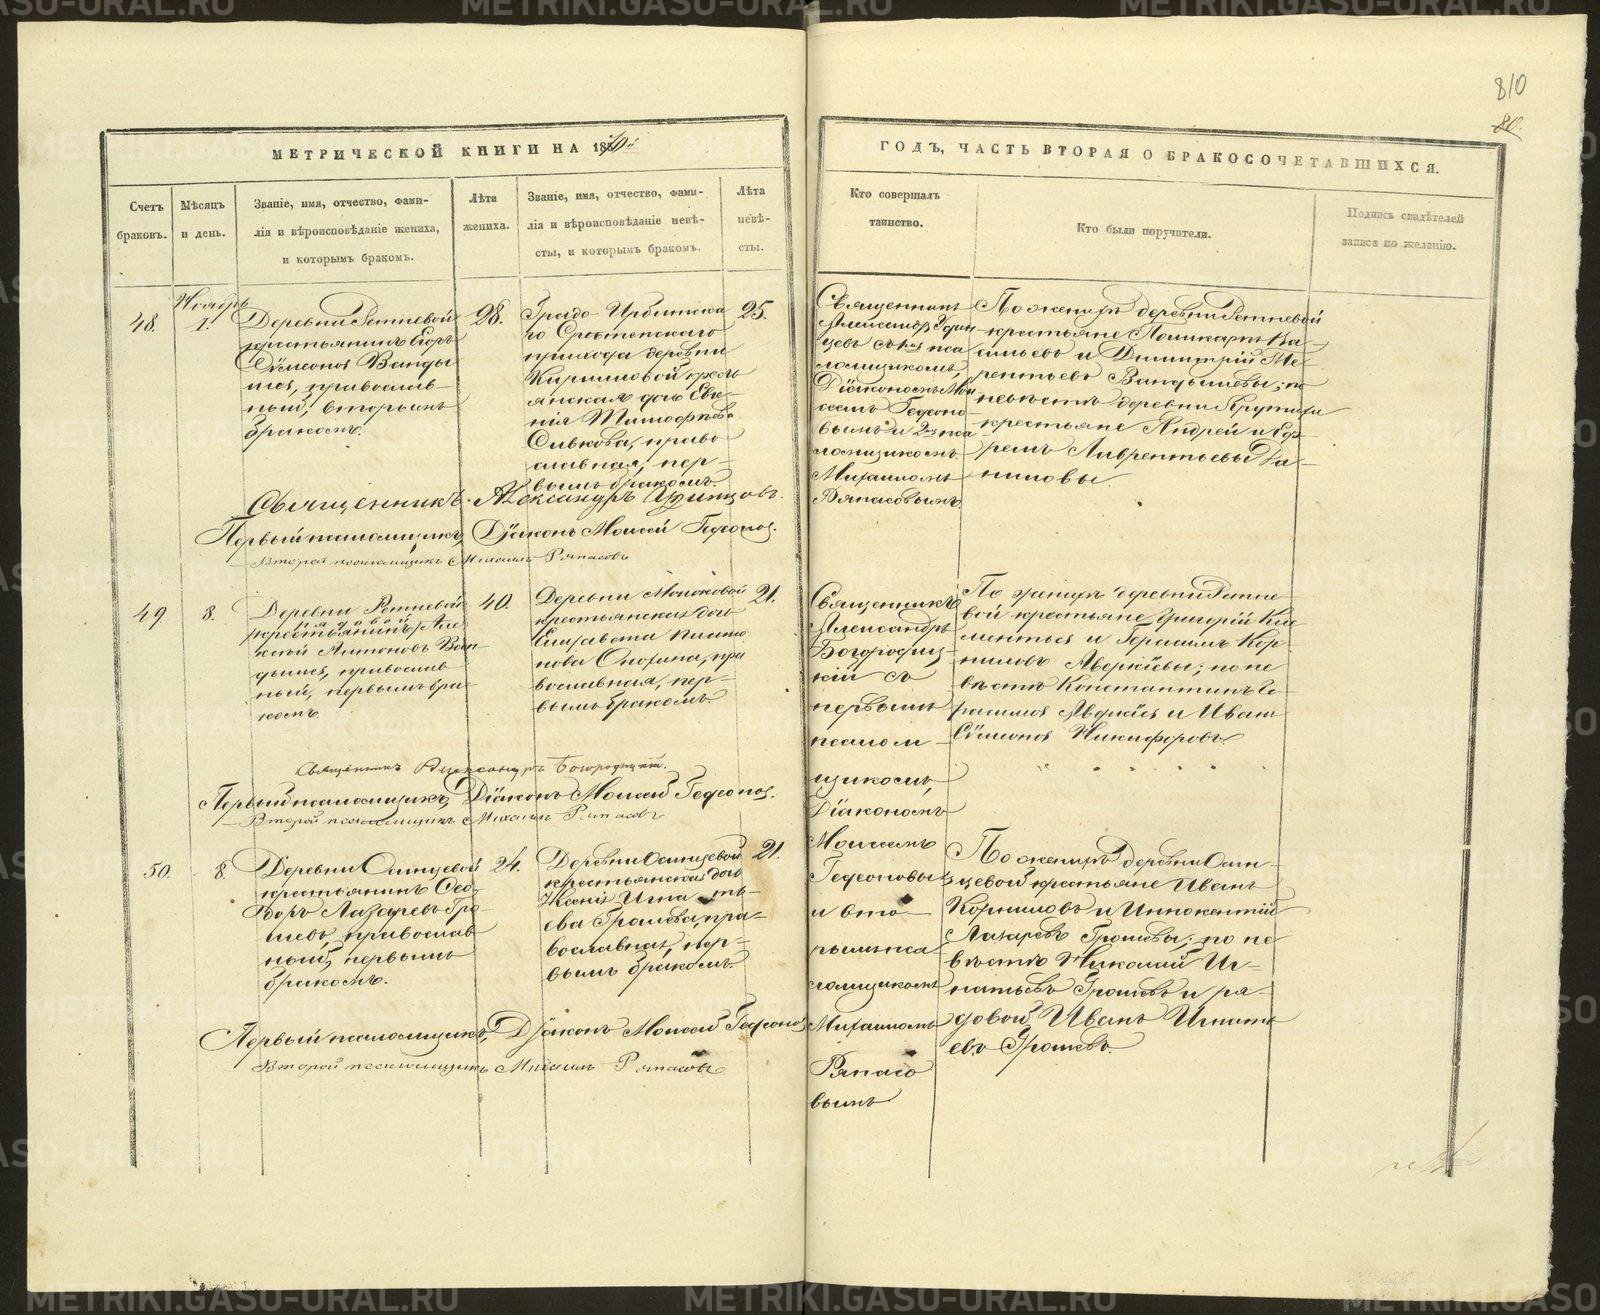 810
80.
МЕТРИЧЕСКОЙ КНИГИ НА 18
ГОДЪ, ЧАСТЬ ВТОРАЯ О БРАКОСОЧЕТАВШИХСЯ.
Счетъ
браковъ.
Мѣсяцъ
и день.
Званіе, имя, отчество, фами-
лія и вѣроисповѣданіе жениха,
и которымъ бракомъ.
Лѣта
жениха.
Званіе, имя, отчество, фами-
лія и вѣроисповѣданіе невѣ-
сты, и которымъ бракомъ.
Лѣта
невѣ-
сты.
Кто совершалъ
таинство.
Кто были поручители.
Подпись свидѣтелей
записи по желанію.
48.
Ноябрь
1.
Деревни Ретневой
крестьянинъ Егоръ
Сѵмеоновъ Ванды
шевъ, православ-
ный, вторымъ
бракомъ.
28.
Градо Ирбитска
го Срѣтенскаго
прихода деревни
Кирилловой кресть
янская дочь Евге-
нія Тимофѣева
Сивкова, право
славная, пер-
вымъ бракомъ.
25.
Священникъ
Александръ Удин
цевъ съ 1мъ пса
ломщикомъ,
Діакономъ Мои
сеемъ Гедеоно
вымъ и 2мъ пса
ломщикомъ
Михаиломъ
Ряпасовымъ
По женихѣ деревни Ретневой
крестьяне Поликарпъ Ва-
сильевъ и Димитрій Те-
рентьевъ Вандышевы; по
невѣстѣ деревни Крутихи
крестьяне Андрей и Еф-
ремъ Лаврентьевы Да-
ниловы.
Священникъ Александръ Удинцовъ.
Первый псаломщикъ, Діаконъ Моисей Гедеоновъ.
Второй псаломщикъ Михаилъ Ряпасовъ
49
8.
Деревни Ретневой
рядовой
крестьянинъ Але
ксѣй Антоновъ Ван
дышевъ, православ
ный, первымъ бра-
комъ.
40.
Деревни Молоковой
крестьянская дочь
Елизавета
нова Опохина, пра
вославная, пер-
вымъ бракомъ.
21.
Священникъ
Александръ
Богородиц-
кій съ
первымъ
псалом-
щикомъ,
Діакономъ
Моисеемъ
Гедеоновы
и вто-
рымъ пса
ломщикомъ
Михаиломъ
Ряпасо
вымъ
По женихѣ деревни Ретне-
вой крестьяне Григорій Кли
ментьевъ и Герасимъ Кор-
ниловъ Аверкіевы; по не
вѣстѣ Константинъ Ге-
расимовъ Аверкіевъ и Иванъ
Сѵмеоновъ Никифоровъ.
Священникъ Александръ Богородицкій.
Первый псаломщикъ, Діаконъ Моисей Гедеоновъ.
Второй псаломщикъ Михаилъ Ряпасовъ
50.
8.
Деревни Осинцевой
крестьянинъ Ѳео-
доръ Лазаревъ Гро-
шевъ, православ
ный, первымъ
бракомъ.
24.
Деревни Осинцевой
крестьянская дочь
Ксенія Игнать-
ева Грошева, пра-
вославная, пер-
вымъ бракомъ.
21.
По женихѣ деревни Осин-
цевой крестьяне Иванъ
Корниловъ и Иннокентій
Лазаревъ Грошевы; по не
вѣстѣ Николай Иг-
натьевъ Грошевъ и ря-
довой Иванъ Игнать
евъ Грошевъ.
Первый псаломщикъ, Діаконъ Моисей Гедеонов
Второй псаломщикъ Михаилъ Ряпасовъ
METRIKI.GASO-URAL.RU